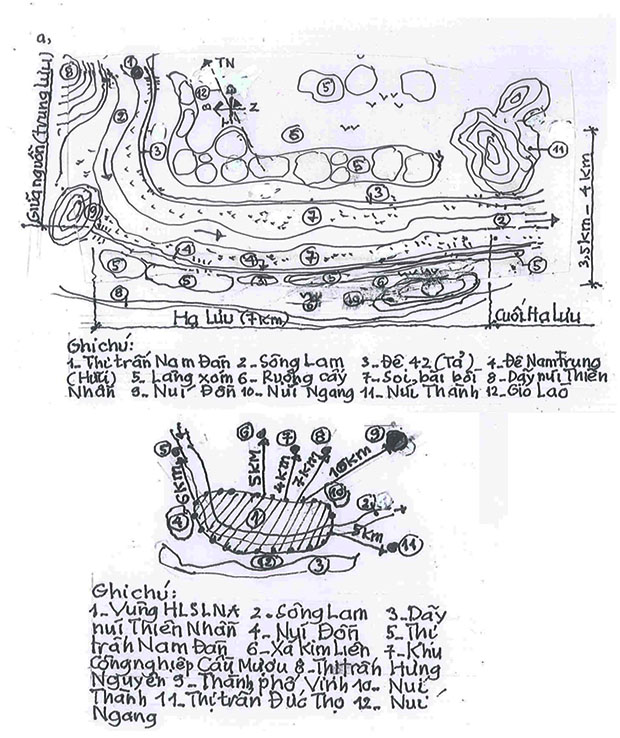 a,
TN
B
Z
Giữa nguồn (trung lưu)
3,5km - 4km
Hạ Lưu (7km)
Cuối Hạ Lưu
Ghi chú:
1- Thị trấn Nam Đàn 2- Sông Lam 3- Đê 42 (Tả) 4- Đê Nam Trung
(Hữu) 5- Làng xóm 6- Ruộng cấy 7- Soi, bãi bồi 8- Dãy núi Thiên
Nhẫn 9- Núi Đồn 10- Núi Ngang 11- Núi Thành 12- Gió Lào
6KM
5KM
4KM
7KM
10KM
5KM
Ghi chú:
1- Vùng HLSLNA 2- Sông Lam 3- Dãy
núi Thiên Nhẫn 4- Núi Đồn 5- Thị
trấn Nam Đàn 6- Xã Kim Liên 7- Khu
công nghiệp Cầu Mượu 8- Thị trấn Hưng
Nguyên 9- Thành phố Vinh 10- Núi
Thành 11- Thị trấn Đức Thọ 12- Núi
Ngang